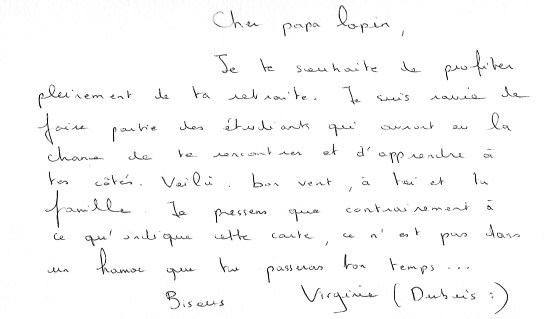 Cher papa lapin,
Je te souhaite de profiter
pleinement de ta retraite. Je suis ravie de
faire partie des étudiants qui auront eu la
chance de te rencontrer et d'apprendre à
tes côtés. Voilà. bon vent, à toi et ta
famille. Je pressens que contrairement à
ce qu'indique cette carte, ce n'est pas dans
un hamac que tu passeras ton temps...
Bisous Virginie (Dubuis :)